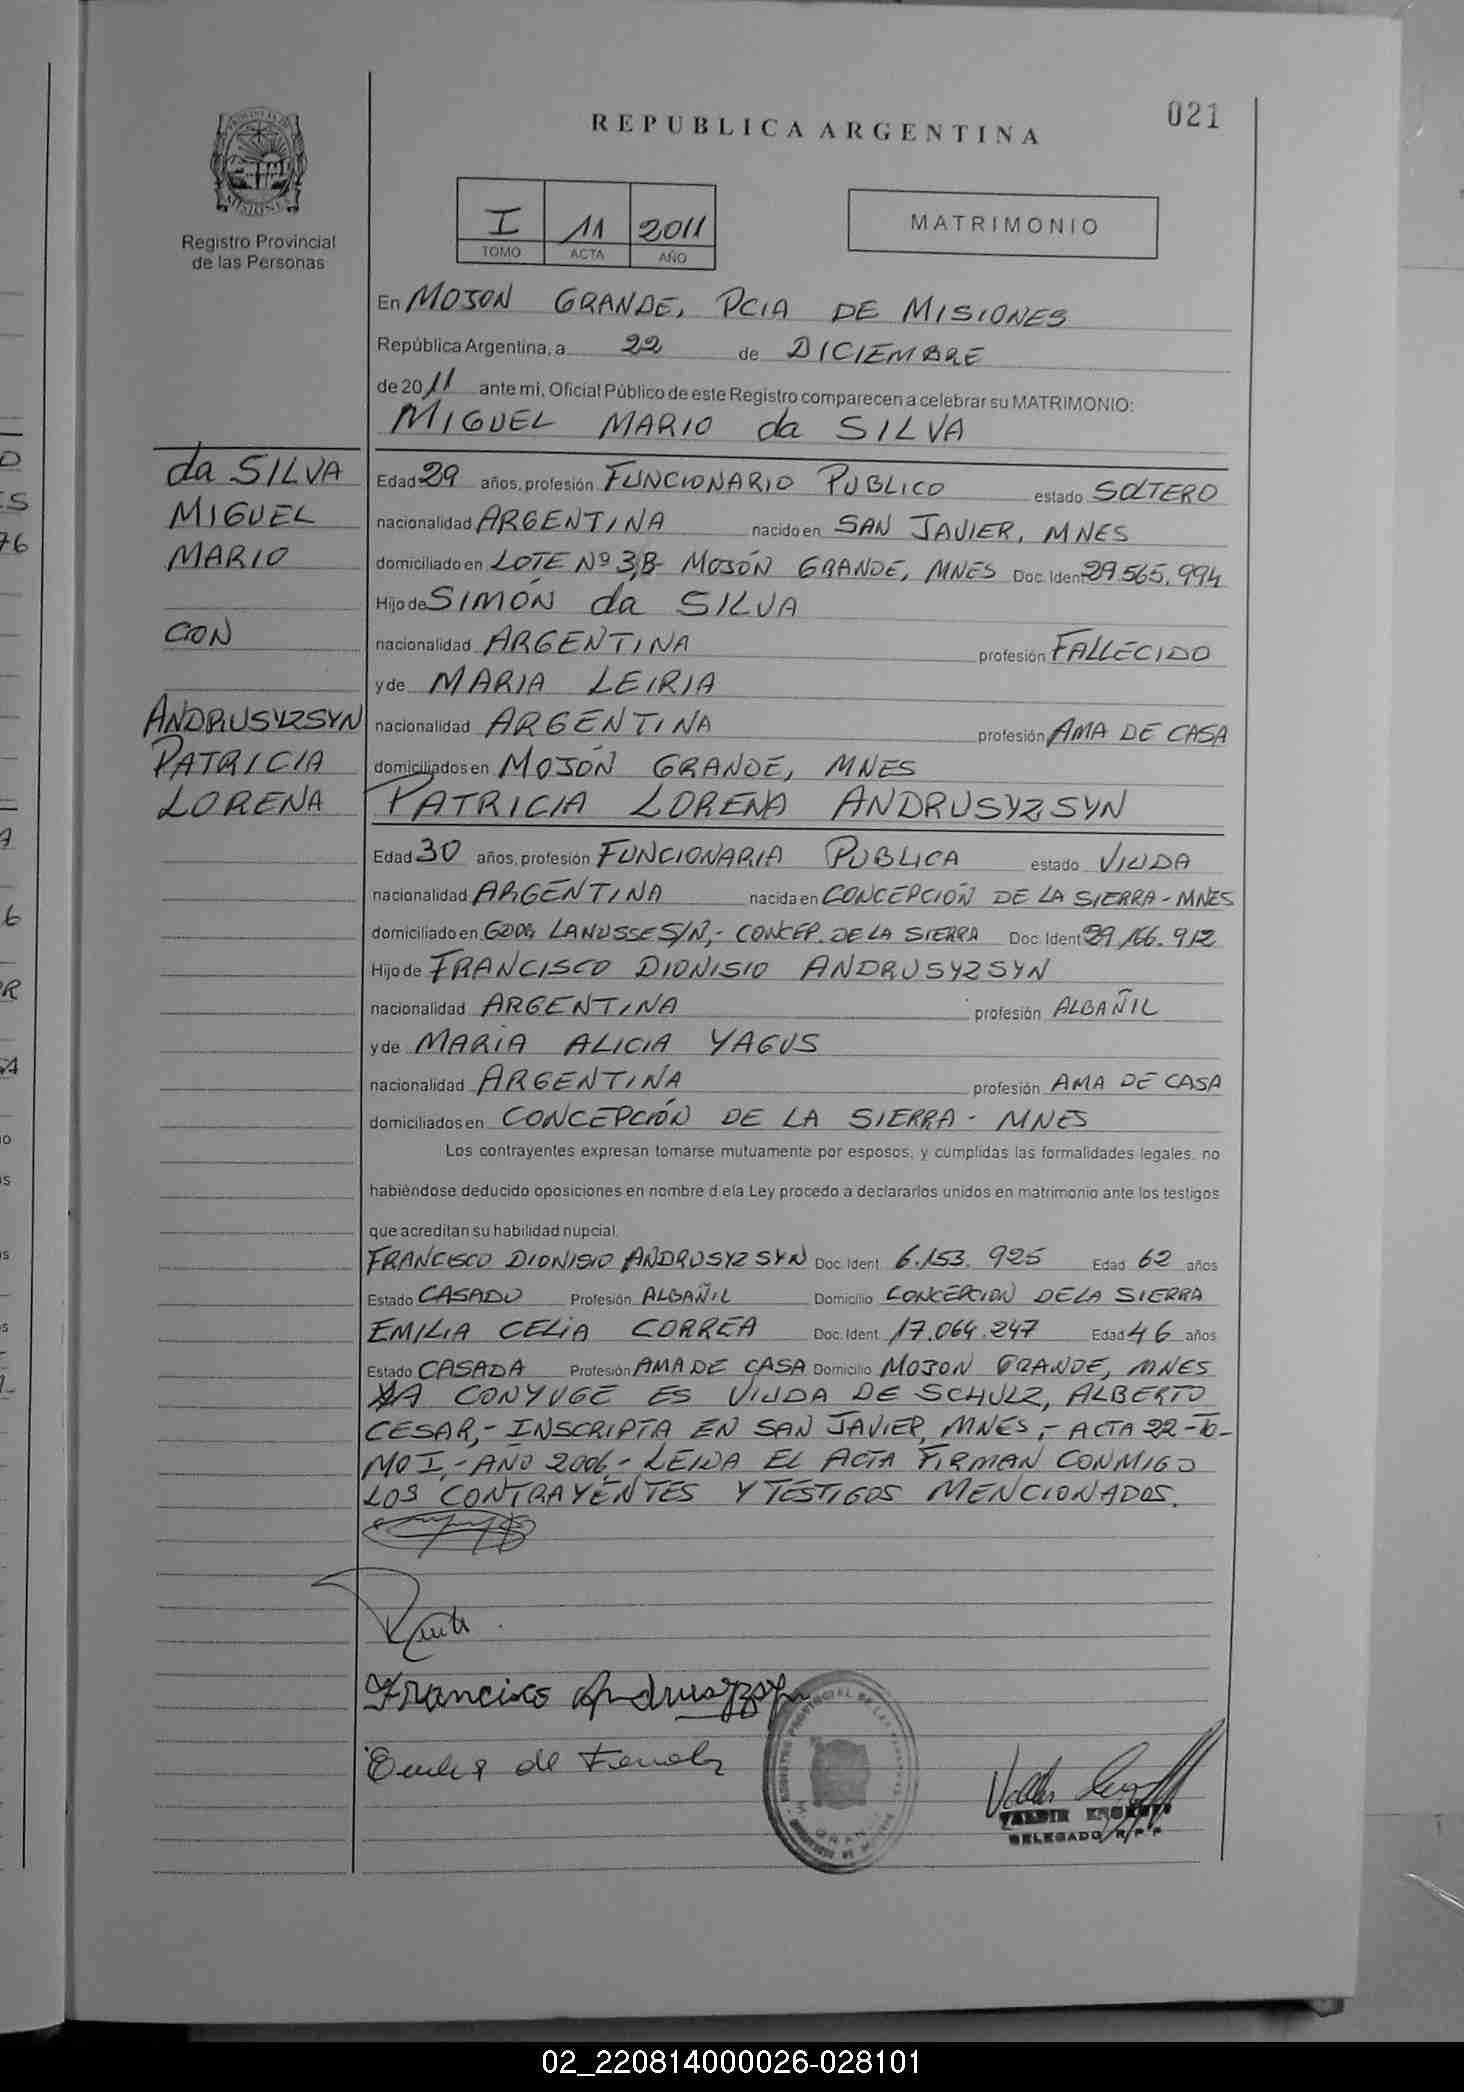 021
REPUBLICA ARGENTINA
MISIONES
Registro Provincial
de las Personas
I 11 2011
TOMO ACTA AÑO
MATRIMONIO
En MOJON GRANDE, PCIA DE MISIONES
República Argentina, a 22 de DICIEMBRE
de 2011 ante mi, Oficial Público de este Registro comparecen a celebrar su MATRIMONIO:
MIGUEL MARIO da SILVA
da SILVA
MIGUEL
MARIO
CON
ANDRUSYZSYN
PATRICIA
LORENA
Edad 29 años, profesión FUNCIONARIO PUBLICO estado SOLTERO
nacionalidad ARGENTINA nacido en SAN JAVIER, MNES
domiciliado en LOTE Nº 3,B- MOJÓN GRANDE, MNES Doc. Ident 29.565.994
Hijo de SIMÓN da SILVA
nacionalidad ARGENTINA profesión FALLECIDO
y de MARIA LEIRIA
nacionalidad ARGENTINA profesión AMA DE CASA
domiciliados en MOJÓN GRANDE, MNES
PATRICIA LORENA ANDRUSYZSYN
Edad 30 años, profesión FUNCIONARIA PUBLICA estado VIUDA
nacionalidad ARGENTINA nacida en CONCEPCIÓN DE LA SIERRA - MNES
domiciliado en LANUSSE S/N,- CONCEP. DE LA SIERRA Doc. Ident 29.166.912
Hijo de FRANCISCO DIONISIO ANDRUSYZSYN
nacionalidad ARGENTINA profesión ALBAÑIL
y de MARIA ALICIA YAGUS
nacionalidad ARGENTINA profesión AMA DE CASA
domiciliados en CONCEPCIÓN DE LA SIERRA - MNES
Los contrayentes expresan tomarse mutuamente por esposos, y cumplidas las formalidades legales, no
habiéndose deducido oposiciones en nombre d ela Ley procedo a declararlos unidos en matrimonio ante los testigos
que acreditan su habilidad nupcial.
FRANCISCO DIONISIO ANDRUSYZSYN Doc. Ident. 6.153.925 Edad 62 años
Estado CASADO Profesión ALBAÑIL Domicilio CONCEPCION DE LA SIERRA
EMILIA CELIA CORREA Doc. Ident. 17.064.247 Edad 46 años
Estado CASADA Profesión AMA DE CASA Domicilio MOJON GRANDE, MNES
LA CONYUGE ES VIUDA DE SCHULZ, ALBERTO
CESAR,- INSCRIPTA EN SAN JAVIER, MNES,- ACTA 22-TO-
MO I,- AÑO 2006,- LEIDA EL ACTA FIRMAN CONMIGO
LOS CONTRAYENTES Y TESTIGOS MENCIONADOS.
Francisco
de
REGISTRO PROVINCIAL DE LAS PERSONAS
VALDIR
DELEGADO R.P.P
02_220814000026-028101